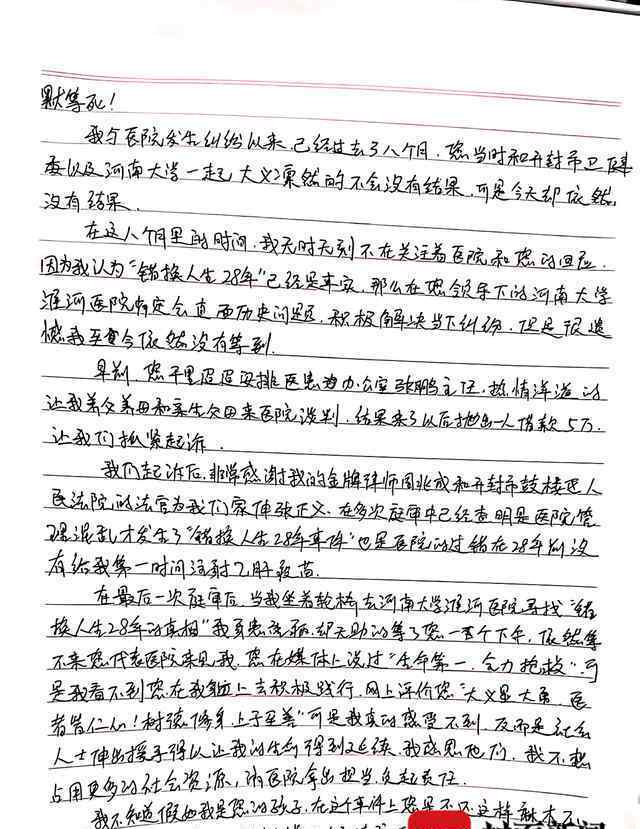 默等死！
我与医院发生纠纷以来，已经过去了八个月，您当时和开封市卫健
委以及河南大学一起大义凛然的不会没有结果，可是今天却依然
没有结果。
在这八个月里的时间，我无时无刻不在关注着医院和您的回应，
因为我认为“错换人生28年”已经是事实，那么在您领导下的河南大学
淮河医院肯定会直面历史问题，积极解决当下纠纷，但是很遗
憾我至今依然没有等到。
早前，您千里迢迢安排医患办公室张鹏主任，热情洋溢的
让我养父养母和亲生父母来医院谈判，结果来了以后抛出一人借款5万，
让我们抓紧起诉。
我们起诉后，非常感谢我的金牌律师周兆成和开封市鼓楼区人
民法院的法官为我们家伸张正义，在多次庭审中已经查明是医院管
理混乱才发生了“错换人生28年事件”也是医院的过错在28年前没
有给我第一时间注射乙肝疫苗。
在最后一次庭审后，当我坐着轮椅去河南大学淮河医院寻找“错
换人生28年的真相”我身患绝症，却无助的等了您一整个下午，依然等
不来您代表医院来见我，您在媒体上说过“生命第一，全力抢救”，可
是我看不到您在我身上去积极践行，网上评价您“大义显大勇，医
者皆仁心！树德修身上予至善”可是我真的感受不到，反而是社会
人士伸出援手得以让我的生命得到延续，我感恩他们，我不想
占用更多的社会资源，请医院拿出担当负起责任。
我不知道假如我是您的孩子，在这个事件上您是不还这样麻木不